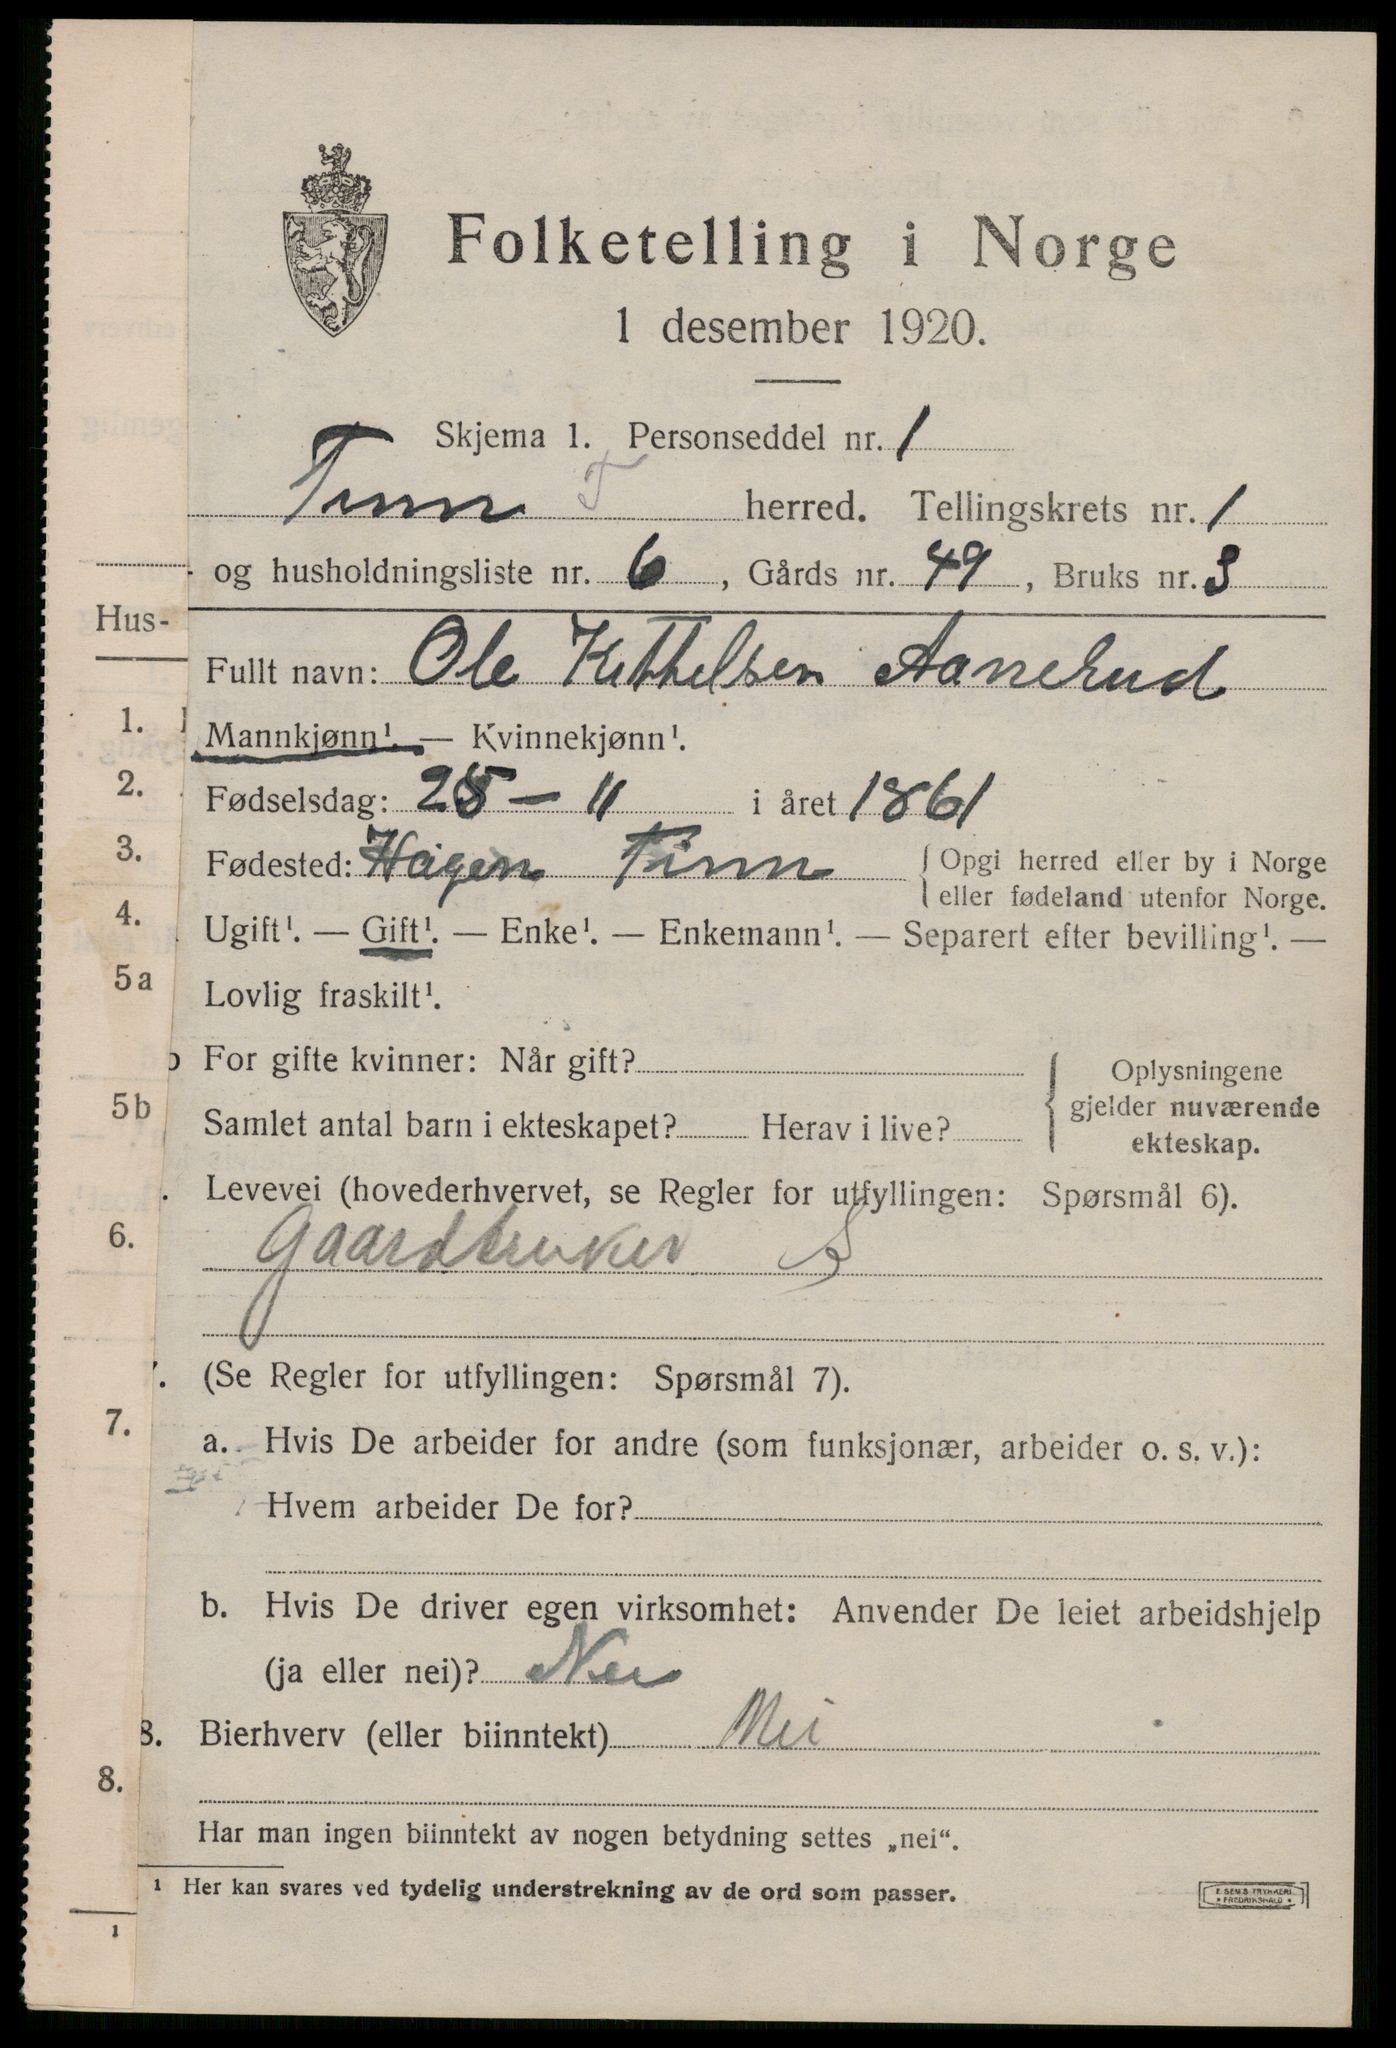 Folketelling i Norge
1 desember 1920.
Skjema 1. Personseddel nr. 1
Tinn T herred. Tellingskrets nr. 1
og husholdningsliste nr. 6, Gårds nr. 49, Bruks nr. 3
Hus-
Fullt navn: Ole Kittelsen Aanerud
1. Mannkjønn¹. — Kvinnekjønn¹.
2. Fødselsdag: 25 - 11 i året 1861
3. Fødested: Hagen Tinn { Opgi herred eller by i Norge
eller fødeland utenfor Norge.
4. Ugift¹. — Gift¹. — Enke¹. — Enkemann¹. — Separert efter bevilling¹. —
5a Lovlig fraskilt¹.
b For gifte kvinner: Når gift? { Oplysningene
gjelder nuværende
ekteskap.
5b Samlet antal barn i ekteskapet? Herav i live?
6. Levevei (hovederhvervet, se Regler for utfyllingen: Spørsmål 6).
Gaardbruker S
7. (Se Regler for utfyllingen: Spørsmål 7).
7. a. Hvis De arbeider for andre (som funksjonær, arbeider o. s. v.):
Hvem arbeider De for?
b. Hvis De driver egen virksomhet: Anvender De leiet arbeidshjelp
(ja eller nei)? Nei
8. Bierhverv (eller biinntekt) Nei
8.
Har man ingen biinntekt av nogen betydning settes „nei“.
¹ Her kan svares ved tydelig understrekning av de ord som passer.
E. SEMS TRYKKERI
FREDRIKSHALD
1